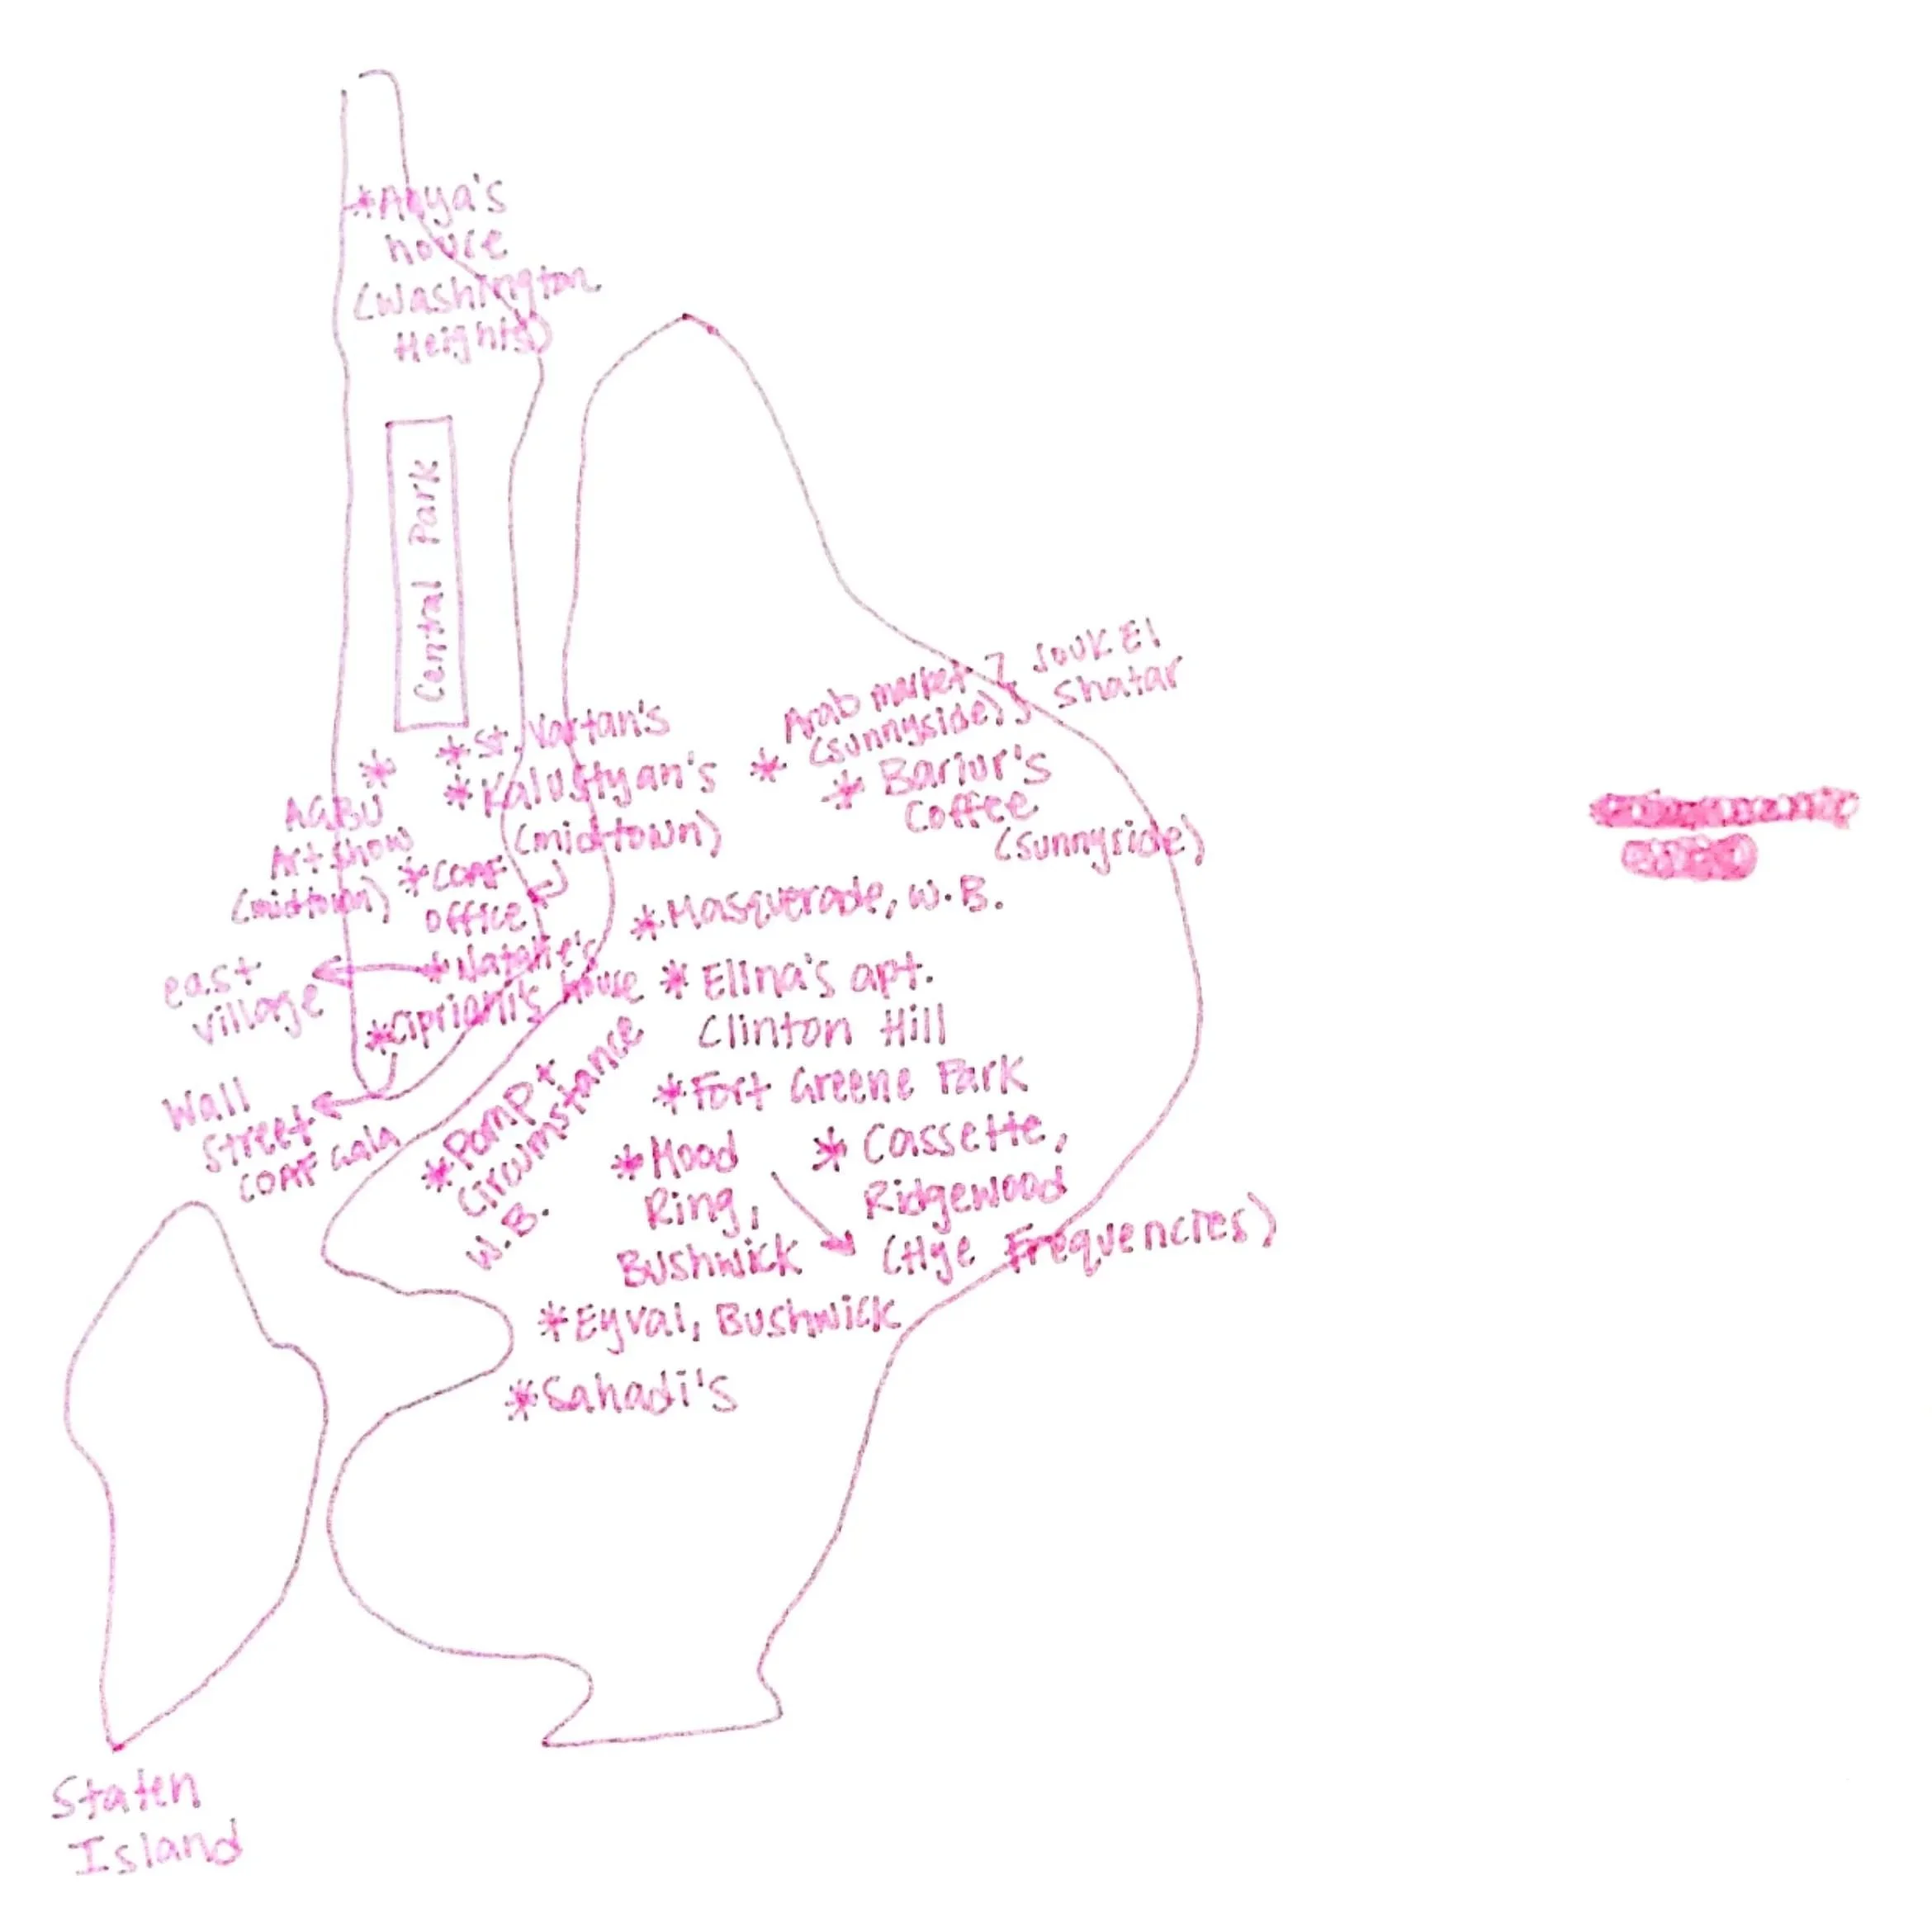 *Anya's
house
(Washington
Heights)
Central Park
*St. Vartan's
*Kalustyan's
(midtown)
*
AGBU
Art show
(midtown)
*COAF
office
*Natalie's
house
east
village
*Cipriani's
Wall
Street
COAF Gala
*
Arab market
(Sunnyside)
Souk El
Shatar
*Bariur's
Coffee
(Sunnyside)
*Masquerade, W.B.
*Elina's apt.
Clinton Hill
*Fort Greene Park
*Pomp +
Circumstance
W.B.
*Mood
Ring,
Bushwick
*Cassette,
Ridgewood
(Hye Frequencies)
*Eyval, Bushwick
*Sahadi's
Staten
Island